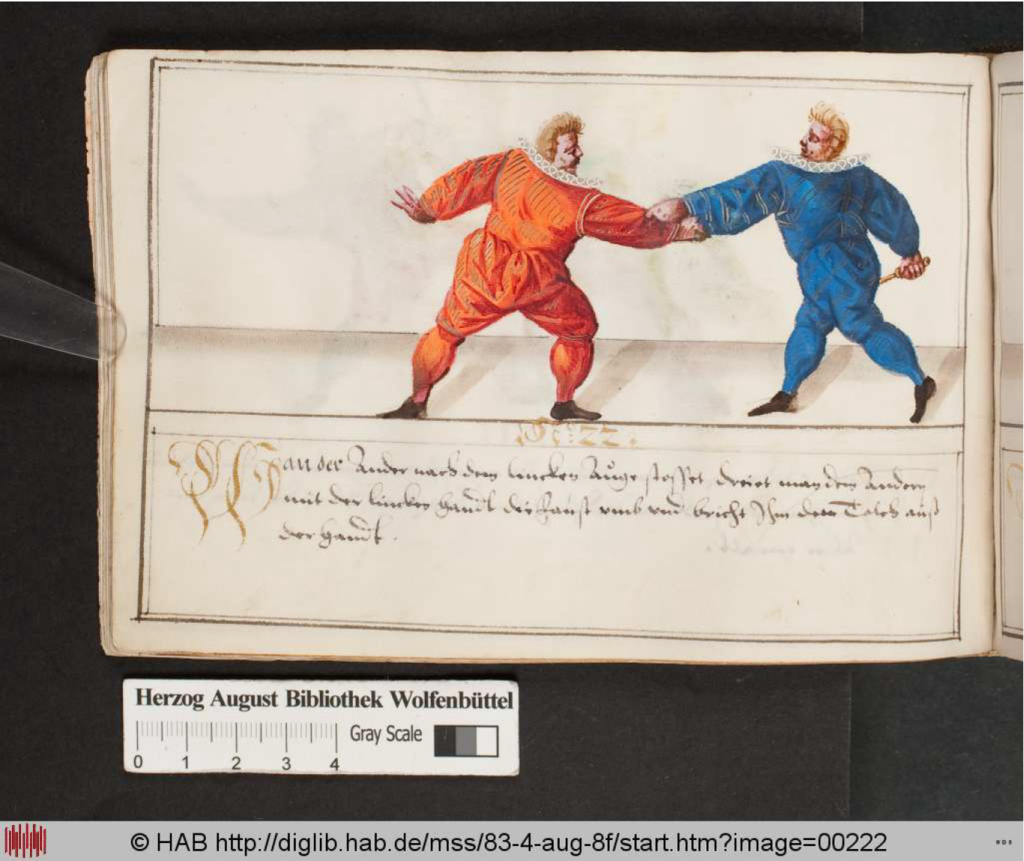 N: 22.
Wan der Ander nach dem lincken Auge stosset, dreiet man dem Andern
mit der lincken Handt die Faust umb und bricht Ihm den Tolch auß
der Handt.
Herzog August Bibliothek Wolfenbüttel
Gray Scale
0 1 2 3 4
© HAB http://diglib.hab.de/mss/83-4-aug-8f/start.htm?image=00222